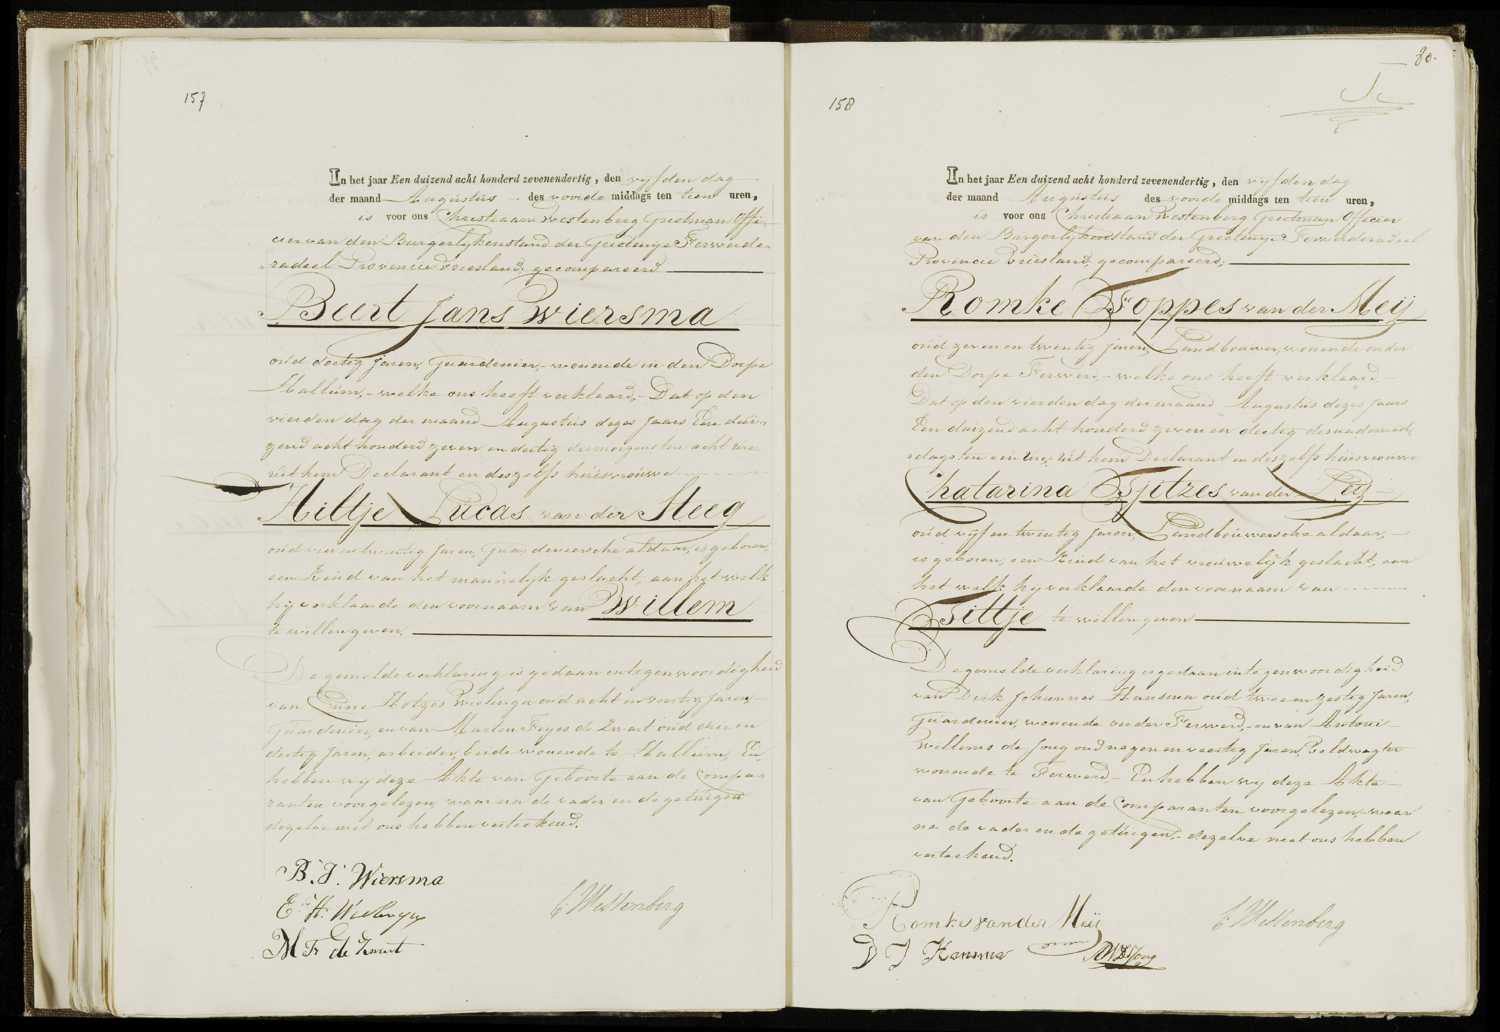 157
In het jaar Een duizend acht honderd zevenendertig, den vyfden dag
der maand Augustus des voorde middags ten tien uren,
is voor ons Christiaan Westenberg Grietman Offi-
cier van den Burgerlykenstand der Grieteny Ferwerde-
radeel Provincie Vriesland, gecompareerd
Beert Jans Wiersma
oud dertig Jaren, Guardenier, wonende in den Dorpe
Hallum, welke ons heeft verklaard, Dat op den
vierden dag der maand Augustus dezes Jaars Een dui-
zend acht honderd zeven en dertig desmorgens ten acht ure
uit hem Declarant en deszelfs huisvrouwe
Hiltje Lucas van der Steeg
oud een en twintig Jaren, Guardeniersche aldaar, is geboren,
een Kind van het mannelyk geslacht, aan het welk
hy verklaarde den voornaam van Willem
te willen geven,
De gemelde verklaring is gedaan in tegenwoordigheid
van Eeme Hotzes Wielinga oud acht en veertig Jaren,
Guardenier, en van Marten Feyes de Zwart oud drie en
dertig Jaren, arbeider, beide wonende te Hallum, En
hebben wy deze Akte van Geboorte aan de Compa-
ranten voorgelezen, waar na de vader en de getuigen
dezelve met ons hebben verteekend.
B. J. Wiersma
E. H. Wielinga
M F de Zwart
C Westenberg
80.
158
In het jaar Een duizend acht honderd zevenendertig, den vyfden dag
der maand Augustus des voorde middags ten tien uren,
is voor ons Christiaan Westenberg Grietman Officier
van den Burgerlykenstand der Grieteny Ferwerderadeel
Provincie Vriesland, gecompareerd,
Romke Foppes van der Meij
oud zeven en twintig Jaren, Landbouwer, wonende onder
den Dorpe Ferwerd, welke ons heeft verklaard
Dat op den vierden dag der maand Augustus dezes Jaars
Een duizend acht honderd zeven en dertig desnademid-
dags ten een ure, uit hem Declarant en deszelfs huisvrouwe
Chatarina Tjitzes van der Leij
oud vyf en twintig Jaren, Landbouwersche aldaar,
is geboren, een Kind van het vrouwelyk geslacht, aan
het welk hy verklaarde den voornaam van
Tittje te willen geven
De gemelde verklaring is gedaan in tegenwoordigheid
van Derk Johannes Hansma oud twee en zestig Jaren,
Guardenier, wonende onder Ferwerd, en van Antoni
Willems de Jong oud negen en veertig Jaren, Veldwagter
wonende te Ferwerd. En hebben wy deze Akte
van Geboorte aan de Comparanten voorgelezen, waar
na de vader en de getuigen, dezelve met ons hebben
verteekend.
Romke van der Meij
D J Hansma
AWDJong
C Westenberg